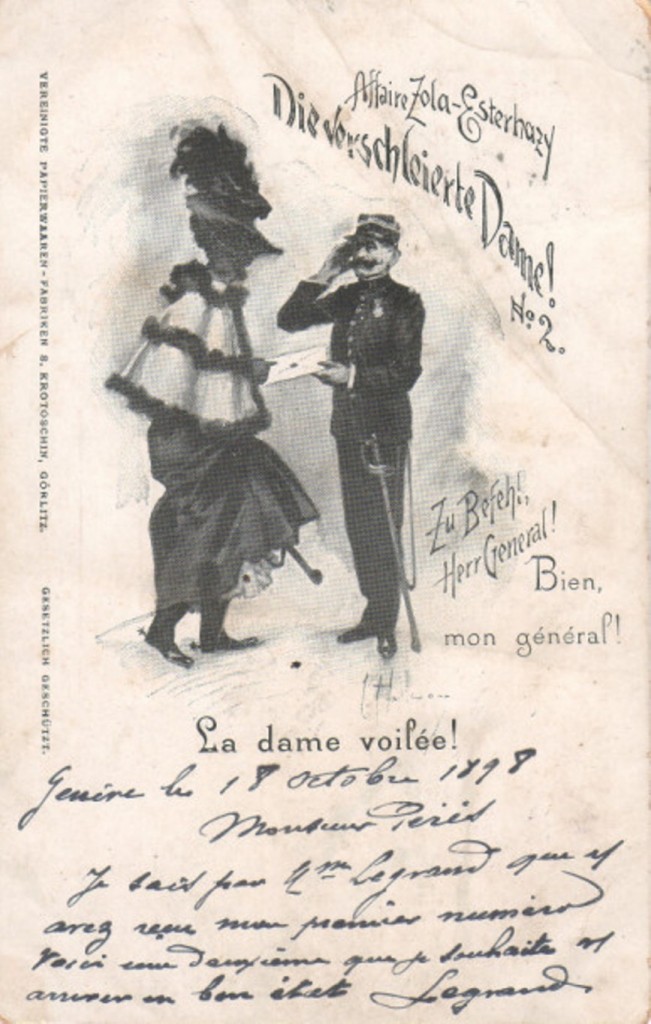 Affaire Zola-Esterhazy
Die verschleierte Dame!
No 2.
Zu Befehl!,
Herr General!
Bien,
mon général!
La dame voilée!
VEREINIGTE PAPIERWAAREN-FABRIKEN S. KROTOSCHIN, GÖRLITZ.
GESETZLICH GESCHÜTZT.
Genève le 18 octobre 1898
Monsieur
Je sais par Mme Legrand que
avez reçu mon premier numéro
Voici un deuxième que je souhaite
arriver en bon état Legrand